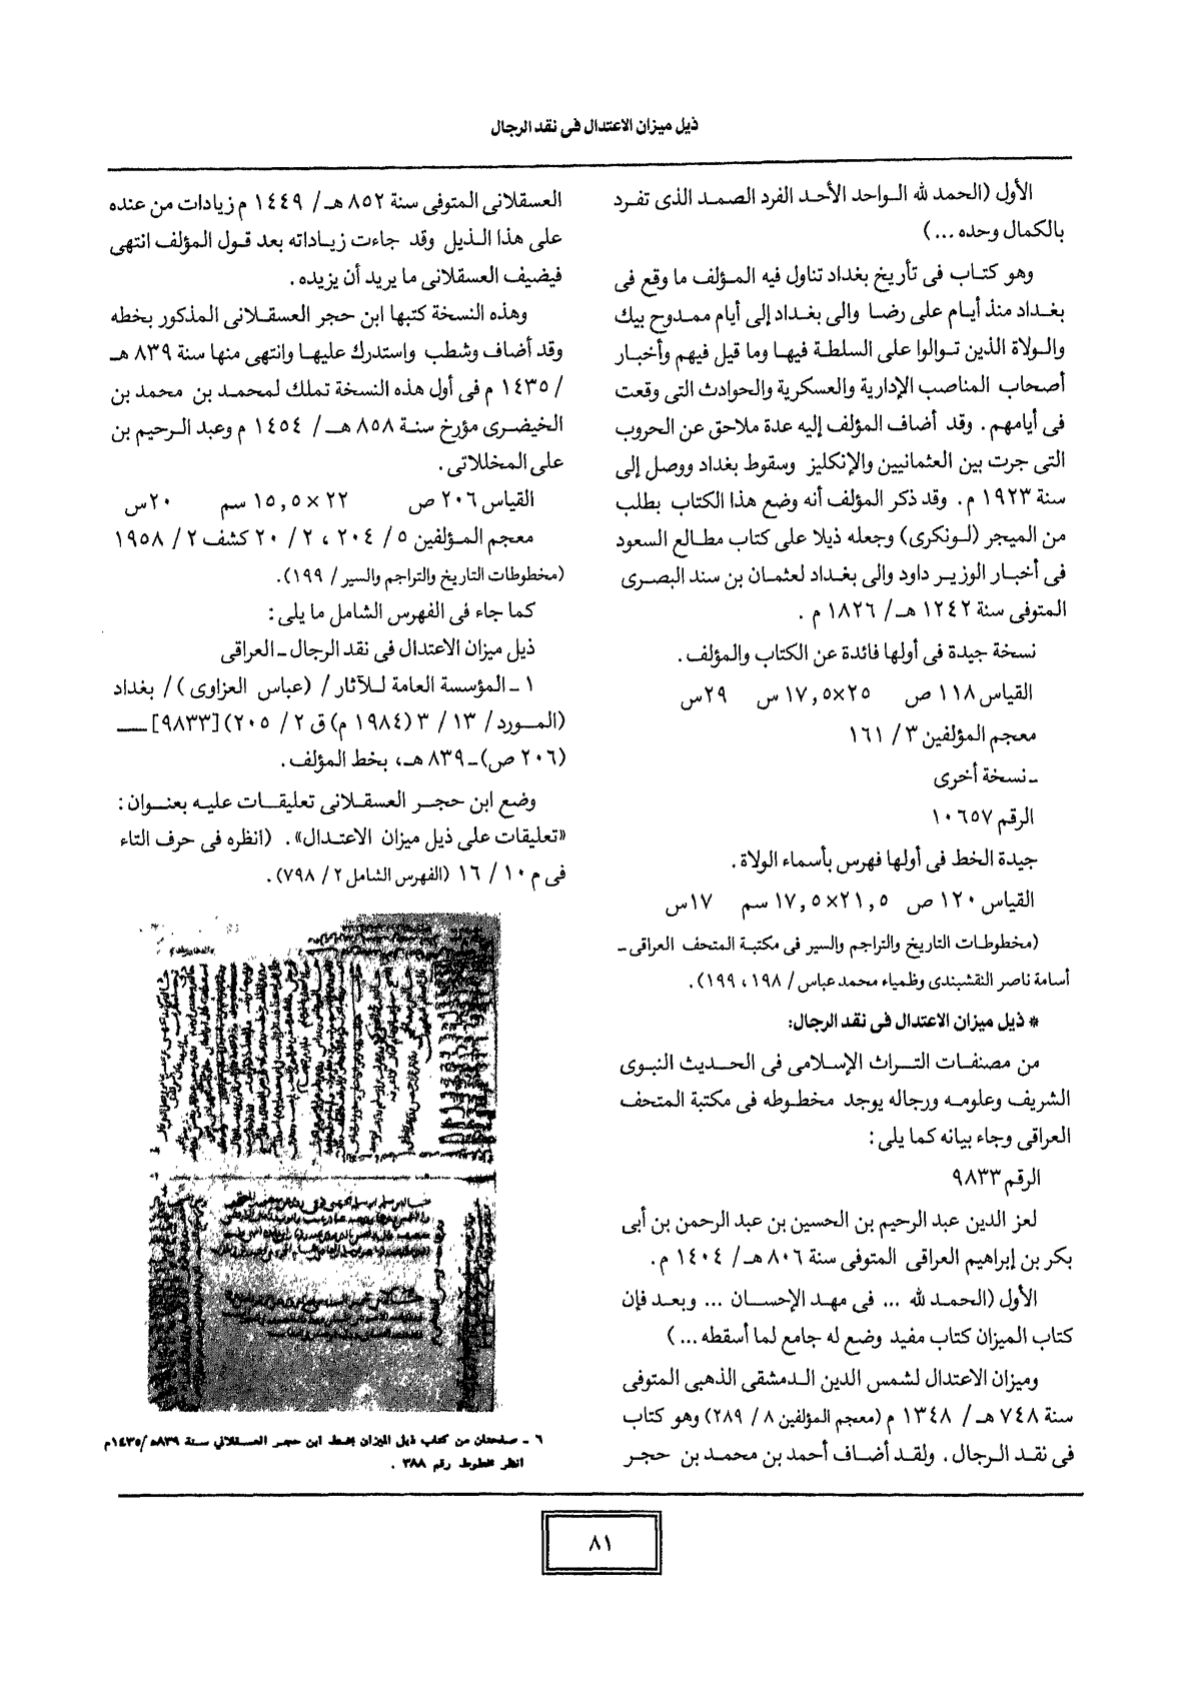 ذيل ميزان الاعتدال فى نقد الرجال
الأول (الحمد لله الواحد الأحد الفرد الصمد الذى تفرد
بالكمال وحده ...)
وهو كتاب فى تأريخ بغداد تناول فيه المؤلف ما وقع فى
بغداد منذ أيام على رضا والى بغداد إلى أيام ممدوح بيك
والولاة الذين توالوا على السلطة فيها وما قيل فيهم وأخبار
أصحاب المناصب الإدارية والعسكرية والحوادث التى وقعت
فى أيامهم . وقد أضاف المؤلف إليه عدة ملاحق عن الحروب
التى جرت بين العثمانيين والإنكليز وسقوط بغداد ووصل إلى
سنة ١٩٢٣ م . وقد ذكر المؤلف أنه وضع هذا الكتاب بطلب
من الميجر (لونكرى) وجعله ذيلا على كتاب مطالع السعود
فى أخبار الوزير داود والى بغداد لعثمان بن سند البصرى
المتوفى سنة ١٢٤٢ هـ / ١٨٢٦ م .
نسخة جيدة فى أولها فائدة عن الكتاب والمؤلف .
القياس ١١٨ ص ٢٥×١٧,٥ س ٢٩س
معجم المؤلفين ٣ / ١٦١
ـ نسخة أخرى
الرقم ١٠٦٥٧
جيدة الخط فى أولها فهرس بأسماء الولاة .
القياس ١٢٠ ص ٢١,٥×١٧,٥ سم ١٧س
(مخطوطات التاريخ والتراجم والسير فى مكتبة المتحف العراقى ـ
أسامة ناصر النقشبندى وظمياء محمد عباس / ١٩٨ ، ١٩٩).
* ذيل ميزان الاعتدال فى نقد الرجال:
من مصنفات التراث الإسلامى فى الحديث النبوى
الشريف وعلومه ورجاله يوجد مخطوطه فى مكتبة المتحف
العراقى وجاء بيانه كما يلى :
الرقم ٩٨٣٣
لعز الدين عبد الرحيم بن الحسين بن عبد الرحمن بن أبى
بكر بن إبراهيم العراقى المتوفى سنة ٨٠٦ هـ / ١٤٠٤ م .
الأول (الحمد لله ... فى مهد الإحسان ... وبعد فإن
كتاب الميزان كتاب مفيد وضع له جامع لما أسقطه ...)
وميزان الاعتدال لشمس الدين الدمشقى الذهبى المتوفى
سنة ٧٤٨ هـ / ١٣٤٨ م (معجم المؤلفين ٨ / ٢٨٩) وهو كتاب
فى نقد الرجال . ولقد أضاف أحمد بن محمد بن حجر
العسقلانى المتوفى سنة ٨٥٢ هـ / ١٤٤٩ م زيادات من عنده
على هذا الذيل وقد جاءت زياداته بعد قول المؤلف انتهى
فيضيف العسقلانى ما يريد أن يزيده .
وهذه النسخة كتبها ابن حجر العسقلانى المذكور بخطه
وقد أضاف وشطب واستدرك عليها وانتهى منها سنة ٨٣٩ هـ
/ ١٤٣٥ م فى أول هذه النسخة تملك لمحمد بن محمد بن
الخيضرى مؤرخ سنة ٨٥٨ هـ / ١٤٥٤ م وعبد الرحيم بن
على المخللاتى .
القياس ٢٠٦ ص ٢٢ × ١٥,٥ سم ٢٠س
معجم المؤلفين ٥ / ٢٠٤ ، ٢ / ٢٠ كشف ٢ / ١٩٥٨
(مخطوطات التاريخ والتراجم والسير / ١٩٩).
كما جاء فى الفهرس الشامل ما يلى :
ذيل ميزان الاعتدال فى نقد الرجال ـ العراقى
١ ـ المؤسسة العامة للآثار / (عباس العزاوى) / بغداد
(المورد / ١٣ / ٣ (١٩٨٤ م) ق ٢ / ٢٠٥) [٩٨٣٣] ـ
(٢٠٦ ص) ـ ٨٣٩ هـ، بخط المؤلف .
وضع ابن حجر العسقلانى تعليقات عليه بعنوان :
«تعليقات على ذيل ميزان الاعتدال» . (انظره فى حرف التاء
فى م ١٠ / ١٦ (الفهرس الشامل ٢ / ٧٩٨) .
٦ ـ صفحتان من كتاب ذيل الميزان بخط ابن حجر العسقلاني سنة ٨٣٩هـ/١٤٣٥م
انظر مخطوط رقم ٣٨٨ .
٨١